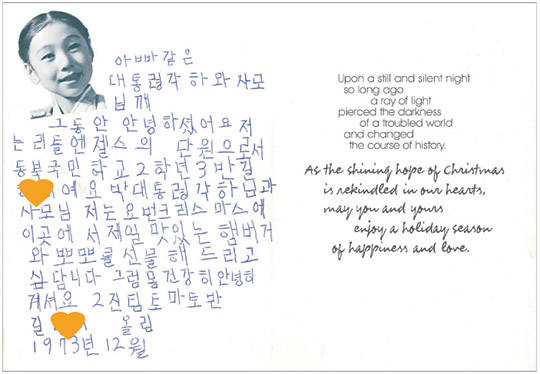 아빠같은
대통령각하와사모
님께
그동안 안녕하셨어요 저
는 리틀엔젤스의 단원으로서
동북국민학교2학년3반길
여요 박대통령각하님과
사모님 저는요번크리스마스에
이곳에서제일맛있는햄버거
와뽀뽀를선물해드리고
싶답니다 그럼몸건강히안녕히
계셔요 2진팀토마토반
길 올림
1973년12월
Upon a still and silent night
so long ago
a ray of light
pierced the darkness
of a troubled world
and changed
the course of history.
As the shining hope of Christmas
is rekindled in our hearts,
may you and yours
enjoy a holiday season
of happiness and love.